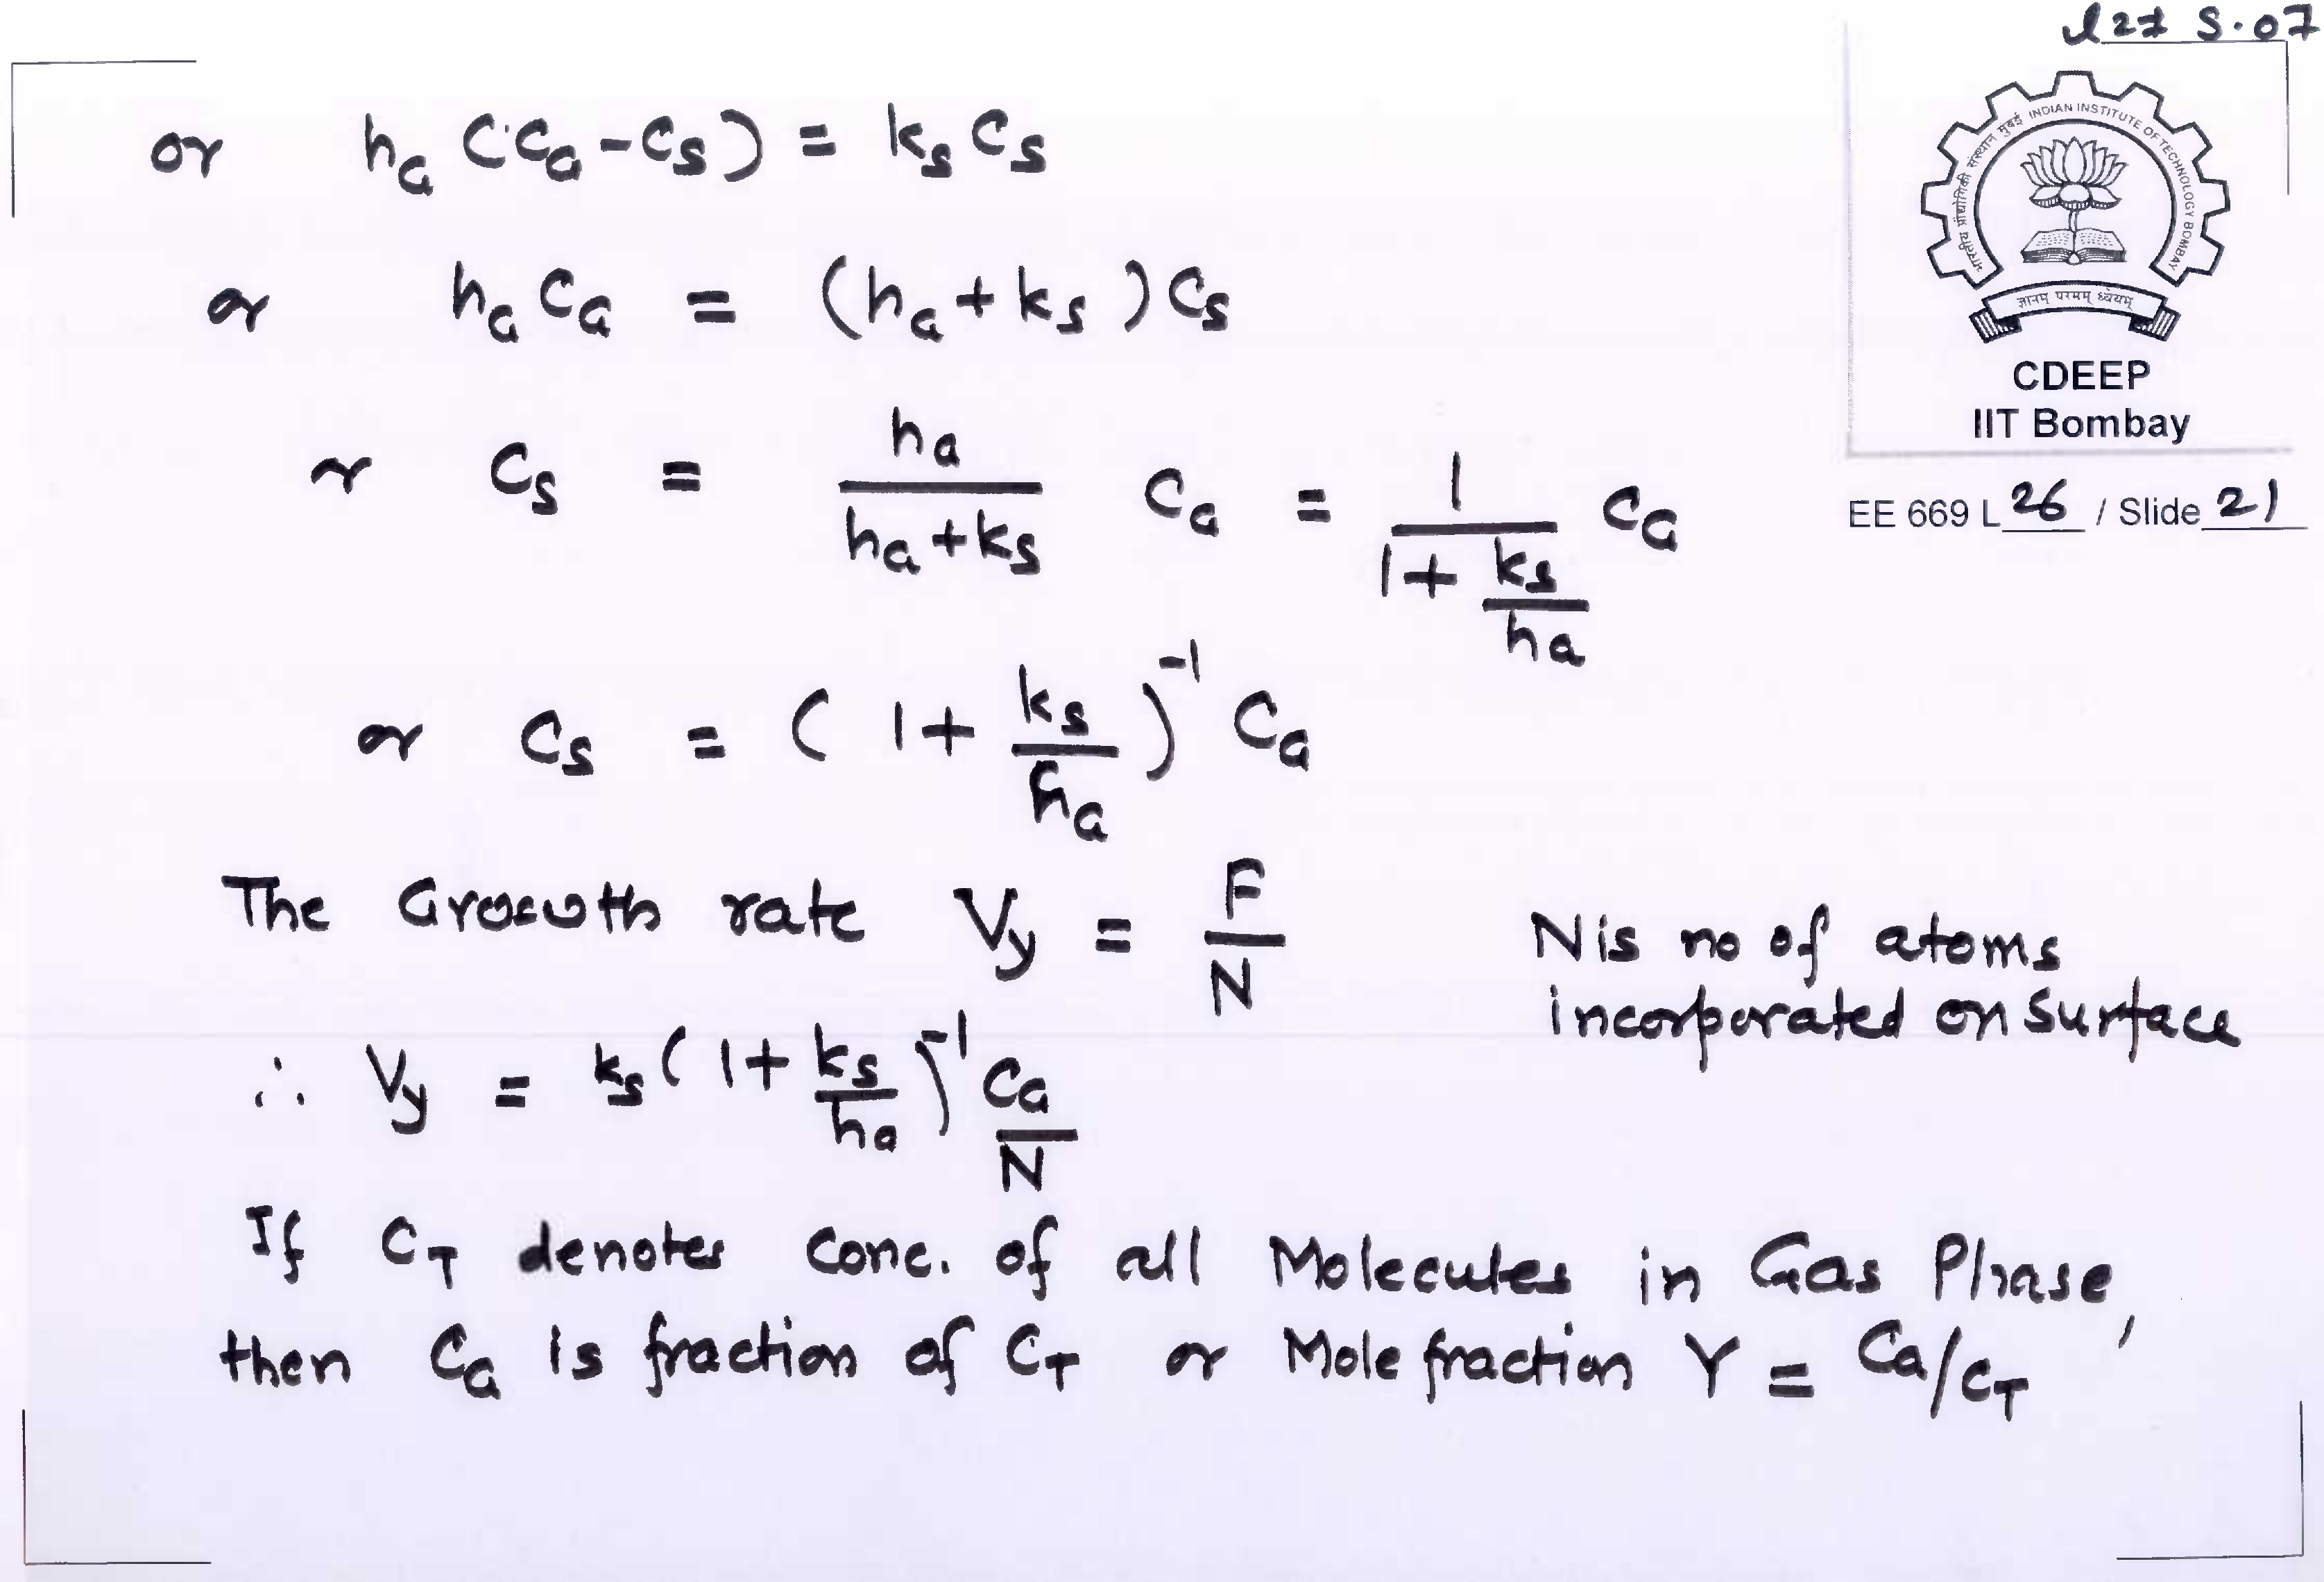 l27 S.07
भारतीय प्रौद्योगिकी संस्थान मुंबई INDIAN INSTITUTE OF TECHNOLOGY BOMBAY
ज्ञानम् परमम् ध्येयम्
CDEEP
IIT Bombay
EE 669 L 26 / Slide 21
or h_G (C_G - C_S) = k_S C_S
or h_G C_G = (h_G + k_S) C_S
or C_S = h_G / (h_G + k_S) C_G = 1 / (1 + k_S/h_G) C_G
or C_S = (1 + k_S/h_G)^-1 C_G
The Growth rate V_y = F/N N is no of atoms
incorporated on surface
∴ V_y = k_S (1 + k_S/h_G)^-1 C_G/N
If C_T denotes conc. of all Molecules in Gas Phase,
then C_G is fraction of C_T or Mole fraction Y = C_G/C_T